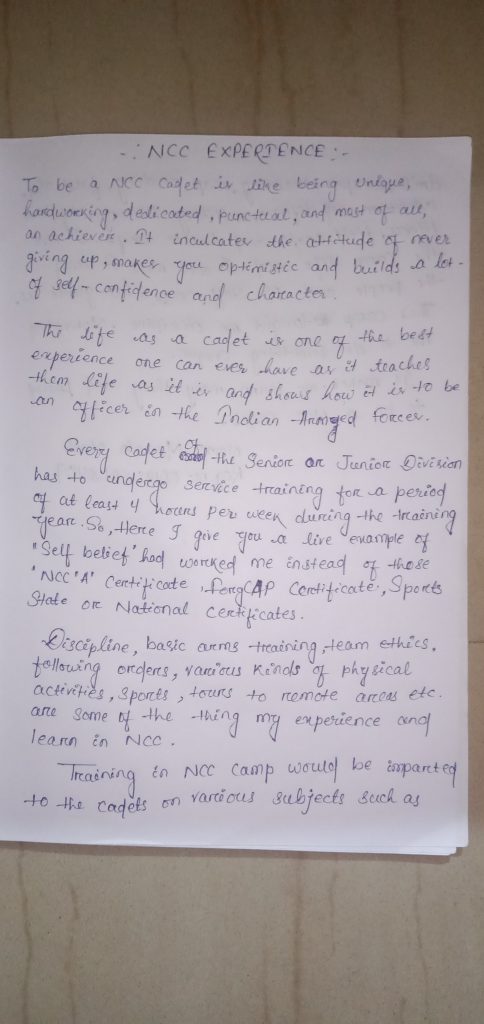 -: NCC EXPERIENCE :-
To be a NCC cadet is like being unique,
hardworking, dedicated, punctual, and most of all,
an achiever. It inculcates the attitude of never
giving up, makes you optimistic and builds a lot-
of self-confidence and character.
The life as a cadet is one of the best
experience one can ever have as it teaches
them life as it is and shows how it is to be
an officer in the Indian Armed Forces.
Every cadet of the Senior or Junior Division
has to undergo service training for a period
of at least 4 hours per week during the training
year. So, Here I give you a live example of
"Self belief" had worked me instead of those
"NCC 'A' Certificate, Certificate, Sports
State or National Certificates.
Discipline, basic arms training, team ethics,
following orders, various kinds of physical
activities, sports, tours to remote areas etc.
are some of the thing my experience and
learn in NCC.
Training in NCC camp would be imparted
to the cadets on various subjects such as